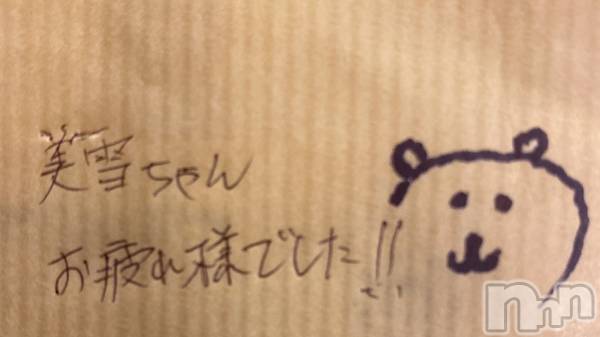 美雪ちゃん
お疲れ様でした!!
nnn